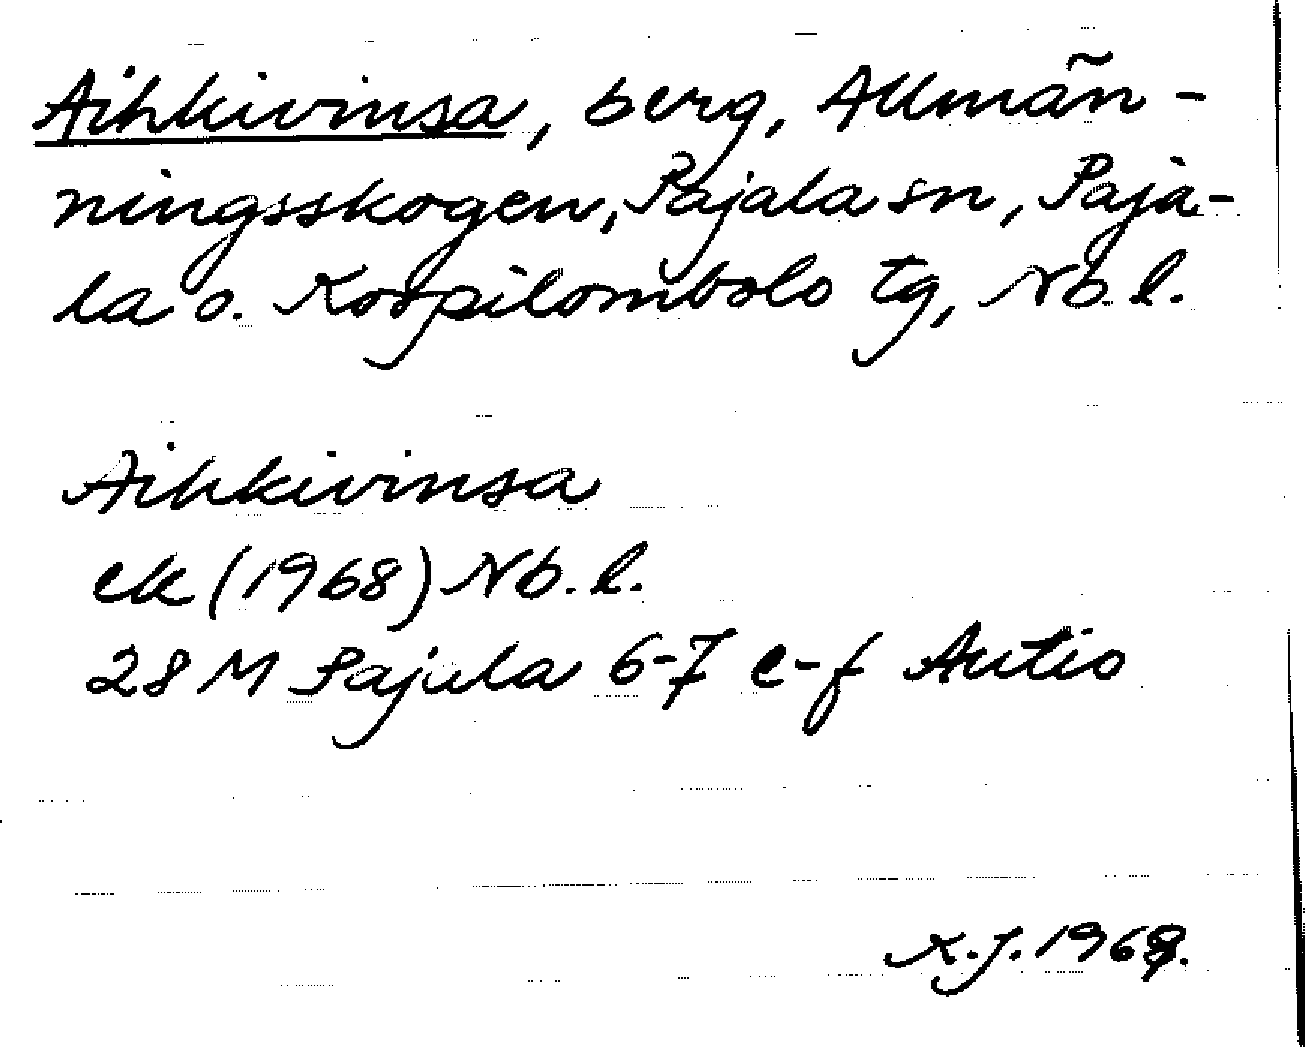 Aihkivinsa, berg, Allmän-
ningsskogen, Pajala sn, Paja-
la o. Korpilombolo tg, Nb. l.
Aihkivinsa
ek (1968) Nb. l.
28 M Pajala 6-7 e-f Autio
K.J. 1969.